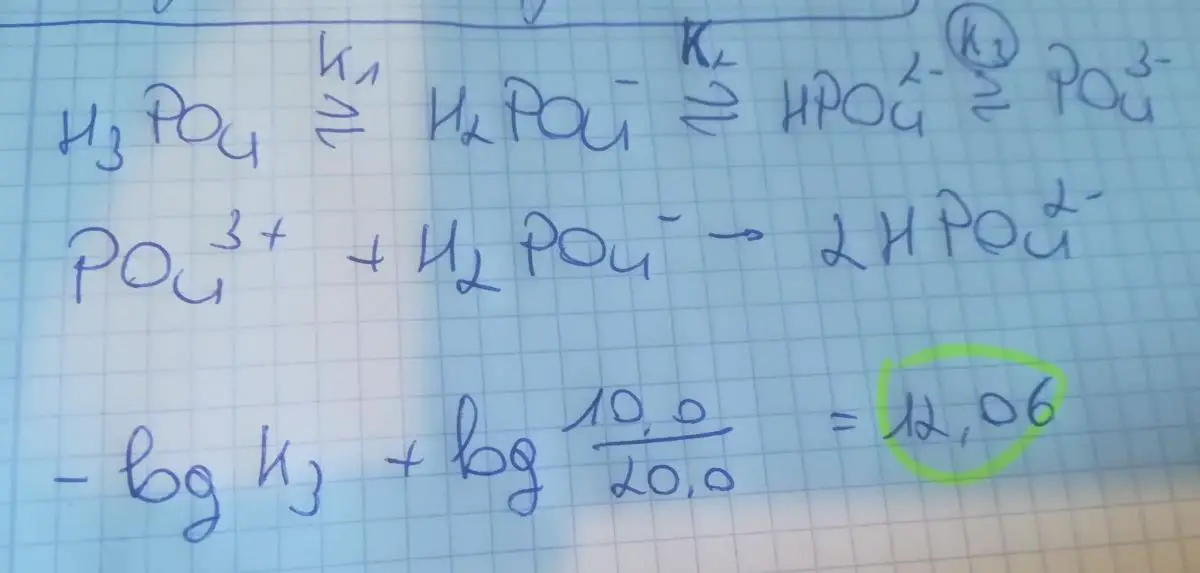 H₃PO₄ ⇌ K₁ H₂PO₄⁻ ⇌ K₂ HPO₄²⁻ ⇌ K₃ PO₄³⁻
PO₄³⁺ + H₂PO₄⁻ → 2HPO₄²⁻
- log K₃ + log 10,0/20,0 = 12,06